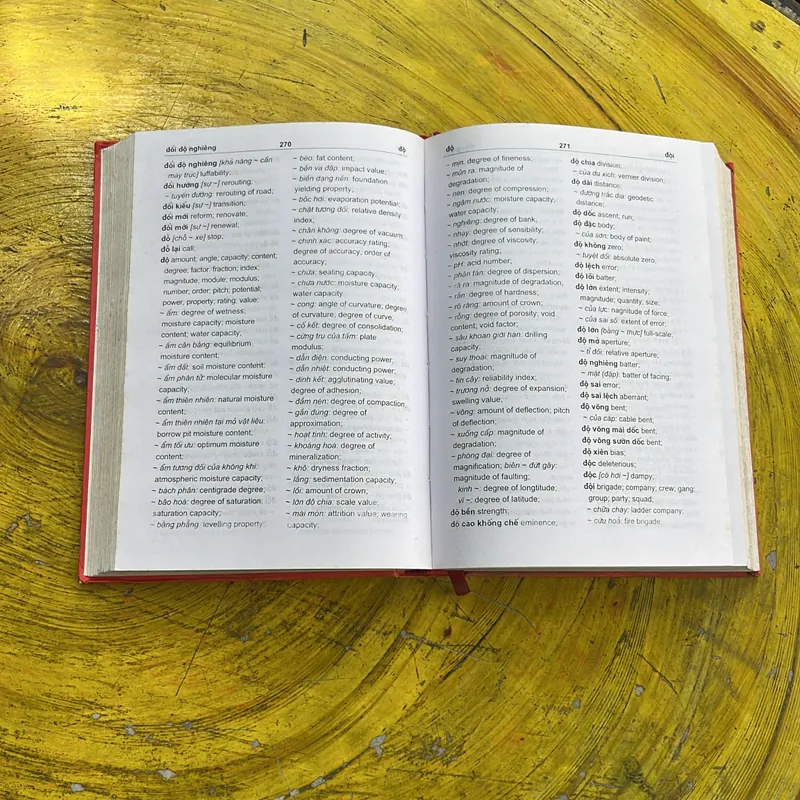 đổi độ nghiêng 270 độ
đổi độ nghiêng [khả năng ~ cần
máy trục] luffability;
đổi hướng [sự ~] rerouting;
~ tuyến đường: rerouting of road;
đổi kiểu [sự ~] transition;
đổi mới reform; renovate;
đổi mới [sự ~] renewal;
đỗ [chỗ ~ xe] stop;
đỗ lại call;
độ amount; angle; capacity; content;
degree; factor; fraction; index;
magnitude; module; modulus;
number; order; pitch; potential;
power; property; rating; value;
~ ẩm: degree of wetness;
moisture capacity; moisture
content; water capacity;
~ ẩm cân bằng: equilibrium
moisture content;
~ ẩm đất: soil moisture content;
~ ẩm phân tử: molecular moisture
capacity;
~ ẩm thiên nhiên: natural moisture
content;
~ ẩm thiên nhiên tại mỏ vật liệu:
borrow pit moisture content;
~ ẩm tối ưu: optimum moisture
content;
~ ẩm tương đối của không khí:
atmospheric moisture capacity;
~ bách phân: centigrade degree;
~ bão hoà: degree of saturation;
saturation capacity;
~ bằng phẳng: levelling property;
~ béo: fat content;
~ bền va đập: impact value;
~ biến dạng nền: foundation
yielding property;
~ bốc hơi: evaporation potential;
~ chặt tương đối: relative density
index;
~ chân không: degree of vacuum;
~ chính xác: accuracy rating;
degree of accuracy; order of
accuracy;
~ chứa: seating capacity;
~ chứa nước: moisture capacity;
water capacity;
~ cong: angle of curvature; degree
of curvature; degree of curve;
~ cố kết: degree of consolidation;
~ cứng trụ của tấm: plate
modulus;
~ dẫn điện: conducting power;
~ dẫn nhiệt: conducting power;
~ dính kết: agglutinating value;
degree of adhesion;
~ đầm nén: degree of compaction;
~ gần đúng: degree of
approximation;
~ hoạt tính: degree of activity;
~ khoáng hoá: degree of
mineralization;
~ khô: dryness fraction;
~ lắng: sedimentation capacity;
~ lồi: amount of crown;
~ lớn độ chia: scale value;
~ mài mòn: attrition value; wearing
capacity;
độ 271 đội
~ mịn: degree of fineness;
~ mủn ra: magnitude of
degradation;
~ nén: degree of compression;
~ ngậm nước: moisture capacity;
water capacity;
~ nghiêng: degree of bank;
~ nhạy: degree of sensibility;
~ nhớt: degree of viscosity;
viscosity rating;
~ pH: acid number;
~ phân tán: degree of dispersion;
~ rã ra: magnitude of degradation;
~ rắn: degree of hardness;
~ rõ ràng: amount of crown;
~ rỗng: degree of porosity; void
content; void factor;
~ sâu khoan giới hạn: drilling
capacity;
~ suy thoái: magnitude of
degradation;
~ tin cậy: reliability index;
~ trương nở: degree of expansion;
swelling value;
~ võng: amount of deflection; pitch
of deflection;
~ xuống cấp: magnitude of
degradation;
~ phóng đại: degree of
magnification; biên ~ đứt gãy:
magnitude of faulting;
kinh ~: degree of longitude;
vĩ ~: degree of latitude;
độ bền strength;
độ cao khống chế eminence;
độ chia division;
~ của du xích: vernier division;
độ dài distance;
~ đường trắc địa: geodetic
distance;
độ dốc ascent; run;
độ đặc body;
~ của sơn: body of paint;
độ không zero;
~ tuyệt đối: absolute zero;
độ lệch error;
độ lồi batter;
độ lớn extent; intensity;
magnitude; quantity; size;
~ của lực: magnitude of force;
~ của sai số: extent of error;
độ lớn [bằng ~ thực] full-scale;
độ mở aperture;
~ tỉ đối: relative aperture;
độ nghiêng batter;
~ mặt (đập): batter of facing;
độ sai error;
độ sai lệch aberrant;
độ võng bent;
~ của cáp: cable bent;
độ võng mái dốc bent;
độ võng sườn dốc bent;
độ xiên bias;
độc deleterious;
độc [có hơi ~] dampy;
đội brigade; company; crew; gang;
group; party; squad;
~ chữa cháy: ladder company;
~ cứu hoả: fire brigade;